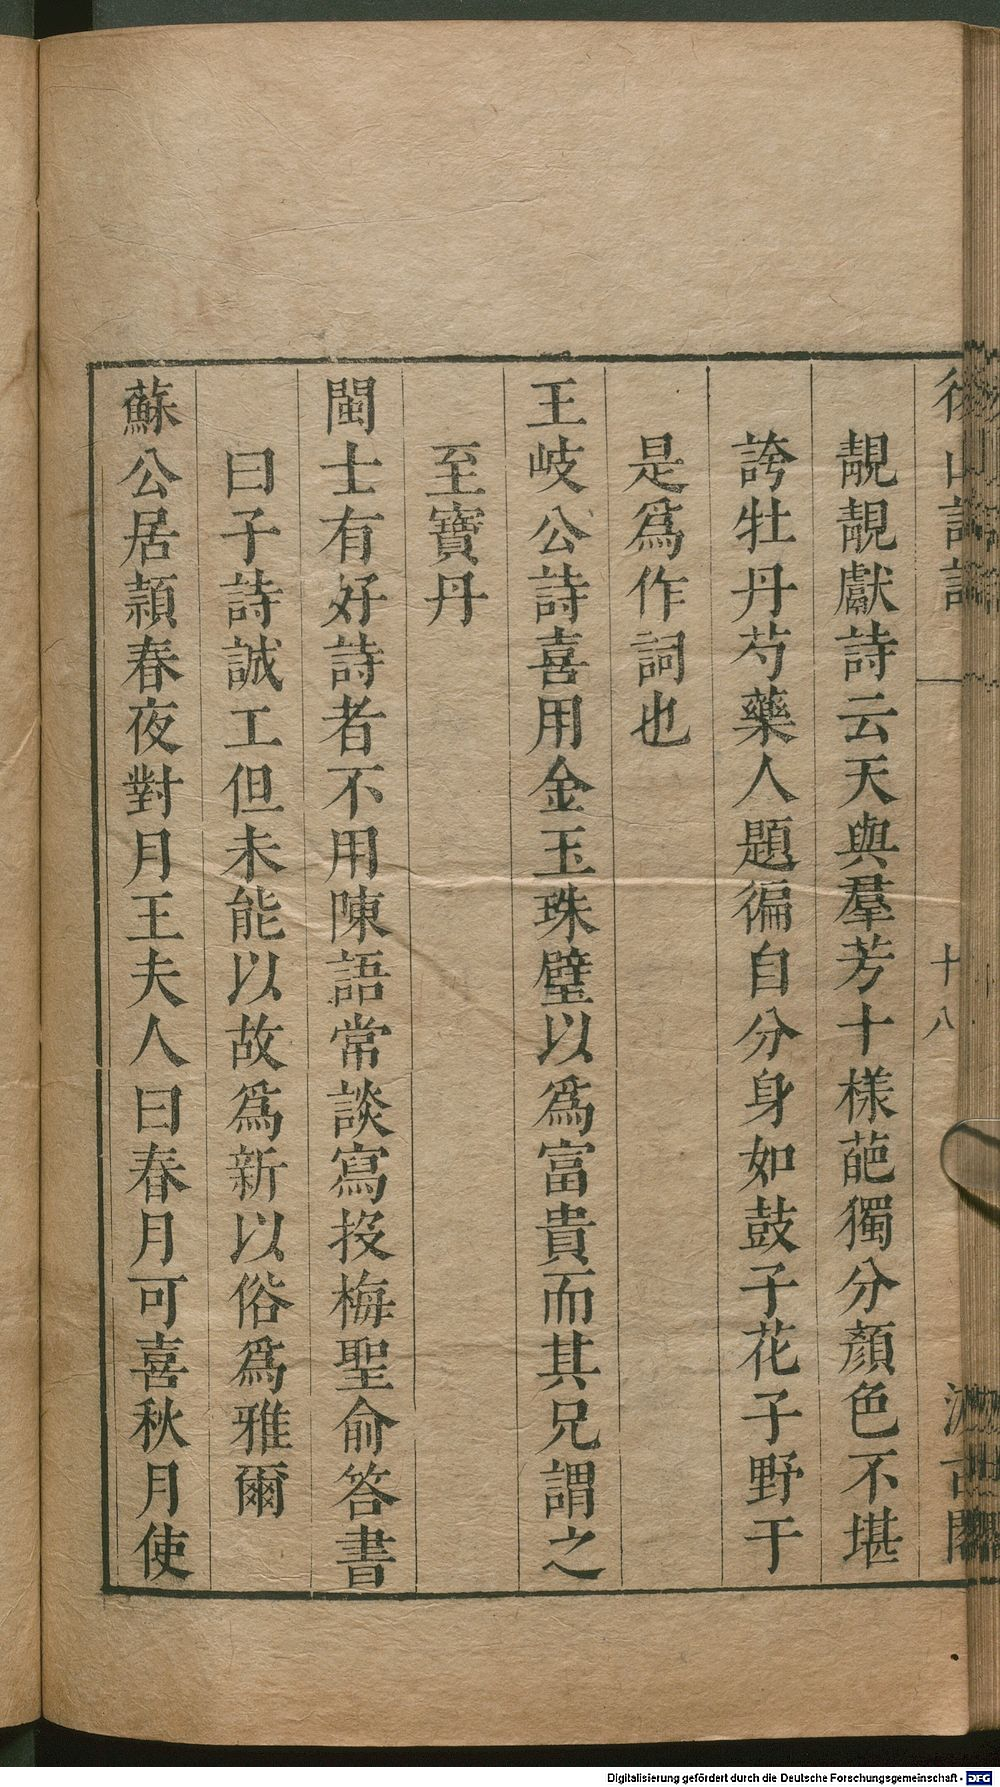 後山詩話
十八
汲古閣
靚靚獻詩云天與羣芳十樣葩獨分顏色不堪
誇牡丹芍藥人題徧自分身如鼓子花子野于
是爲作詞也
王岐公詩喜用金玉珠璧以爲富貴而其兄謂之
至寶丹
閩士有好詩者不用陳語常談寫投梅聖俞答書
曰子詩誠工但未能以故爲新以俗爲雅爾
蘇公居潁春夜對月王夫人曰春月可喜秋月使
Digitalisierung gefördert durch die Deutsche Forschungsgemeinschaft - DFG